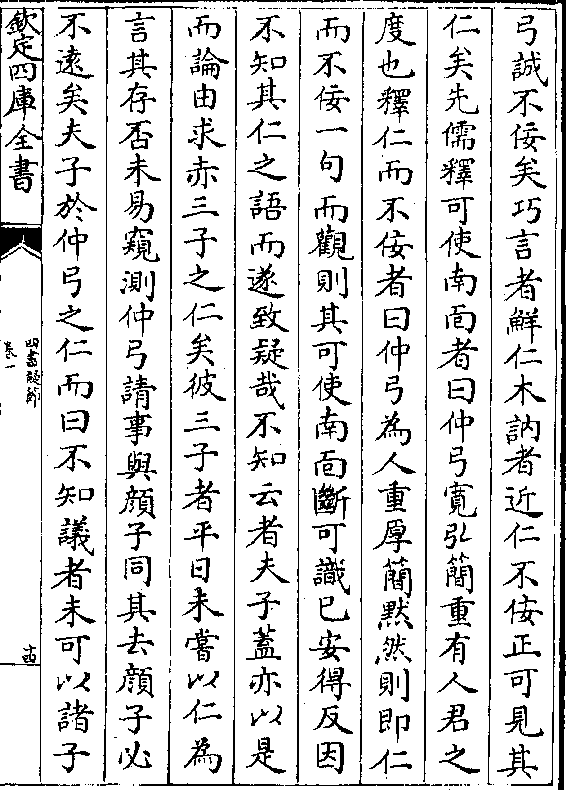 弓誠不佞矣巧言者鮮仁木訥者近仁不佞正可見其
仁矣先儒釋可使南面者曰仲弓寛弘簡重有人君之
度也釋仁而不佞者曰仲弓為人重厚簡黙然則即仁
而不佞一句而觀則其可使南面斷可識已安得反因
不知其仁之語而遂致疑哉不知云者夫子蓋亦以是
而論由求赤三子之仁矣彼三子者平日未嘗以仁為
言其存否未易窺測仲弓請事與顔子同其去顔子必
不逺矣夫子於仲弓之仁而曰不知議者未可以諸子
欽定四庫全書
四書疑節
卷一
十四